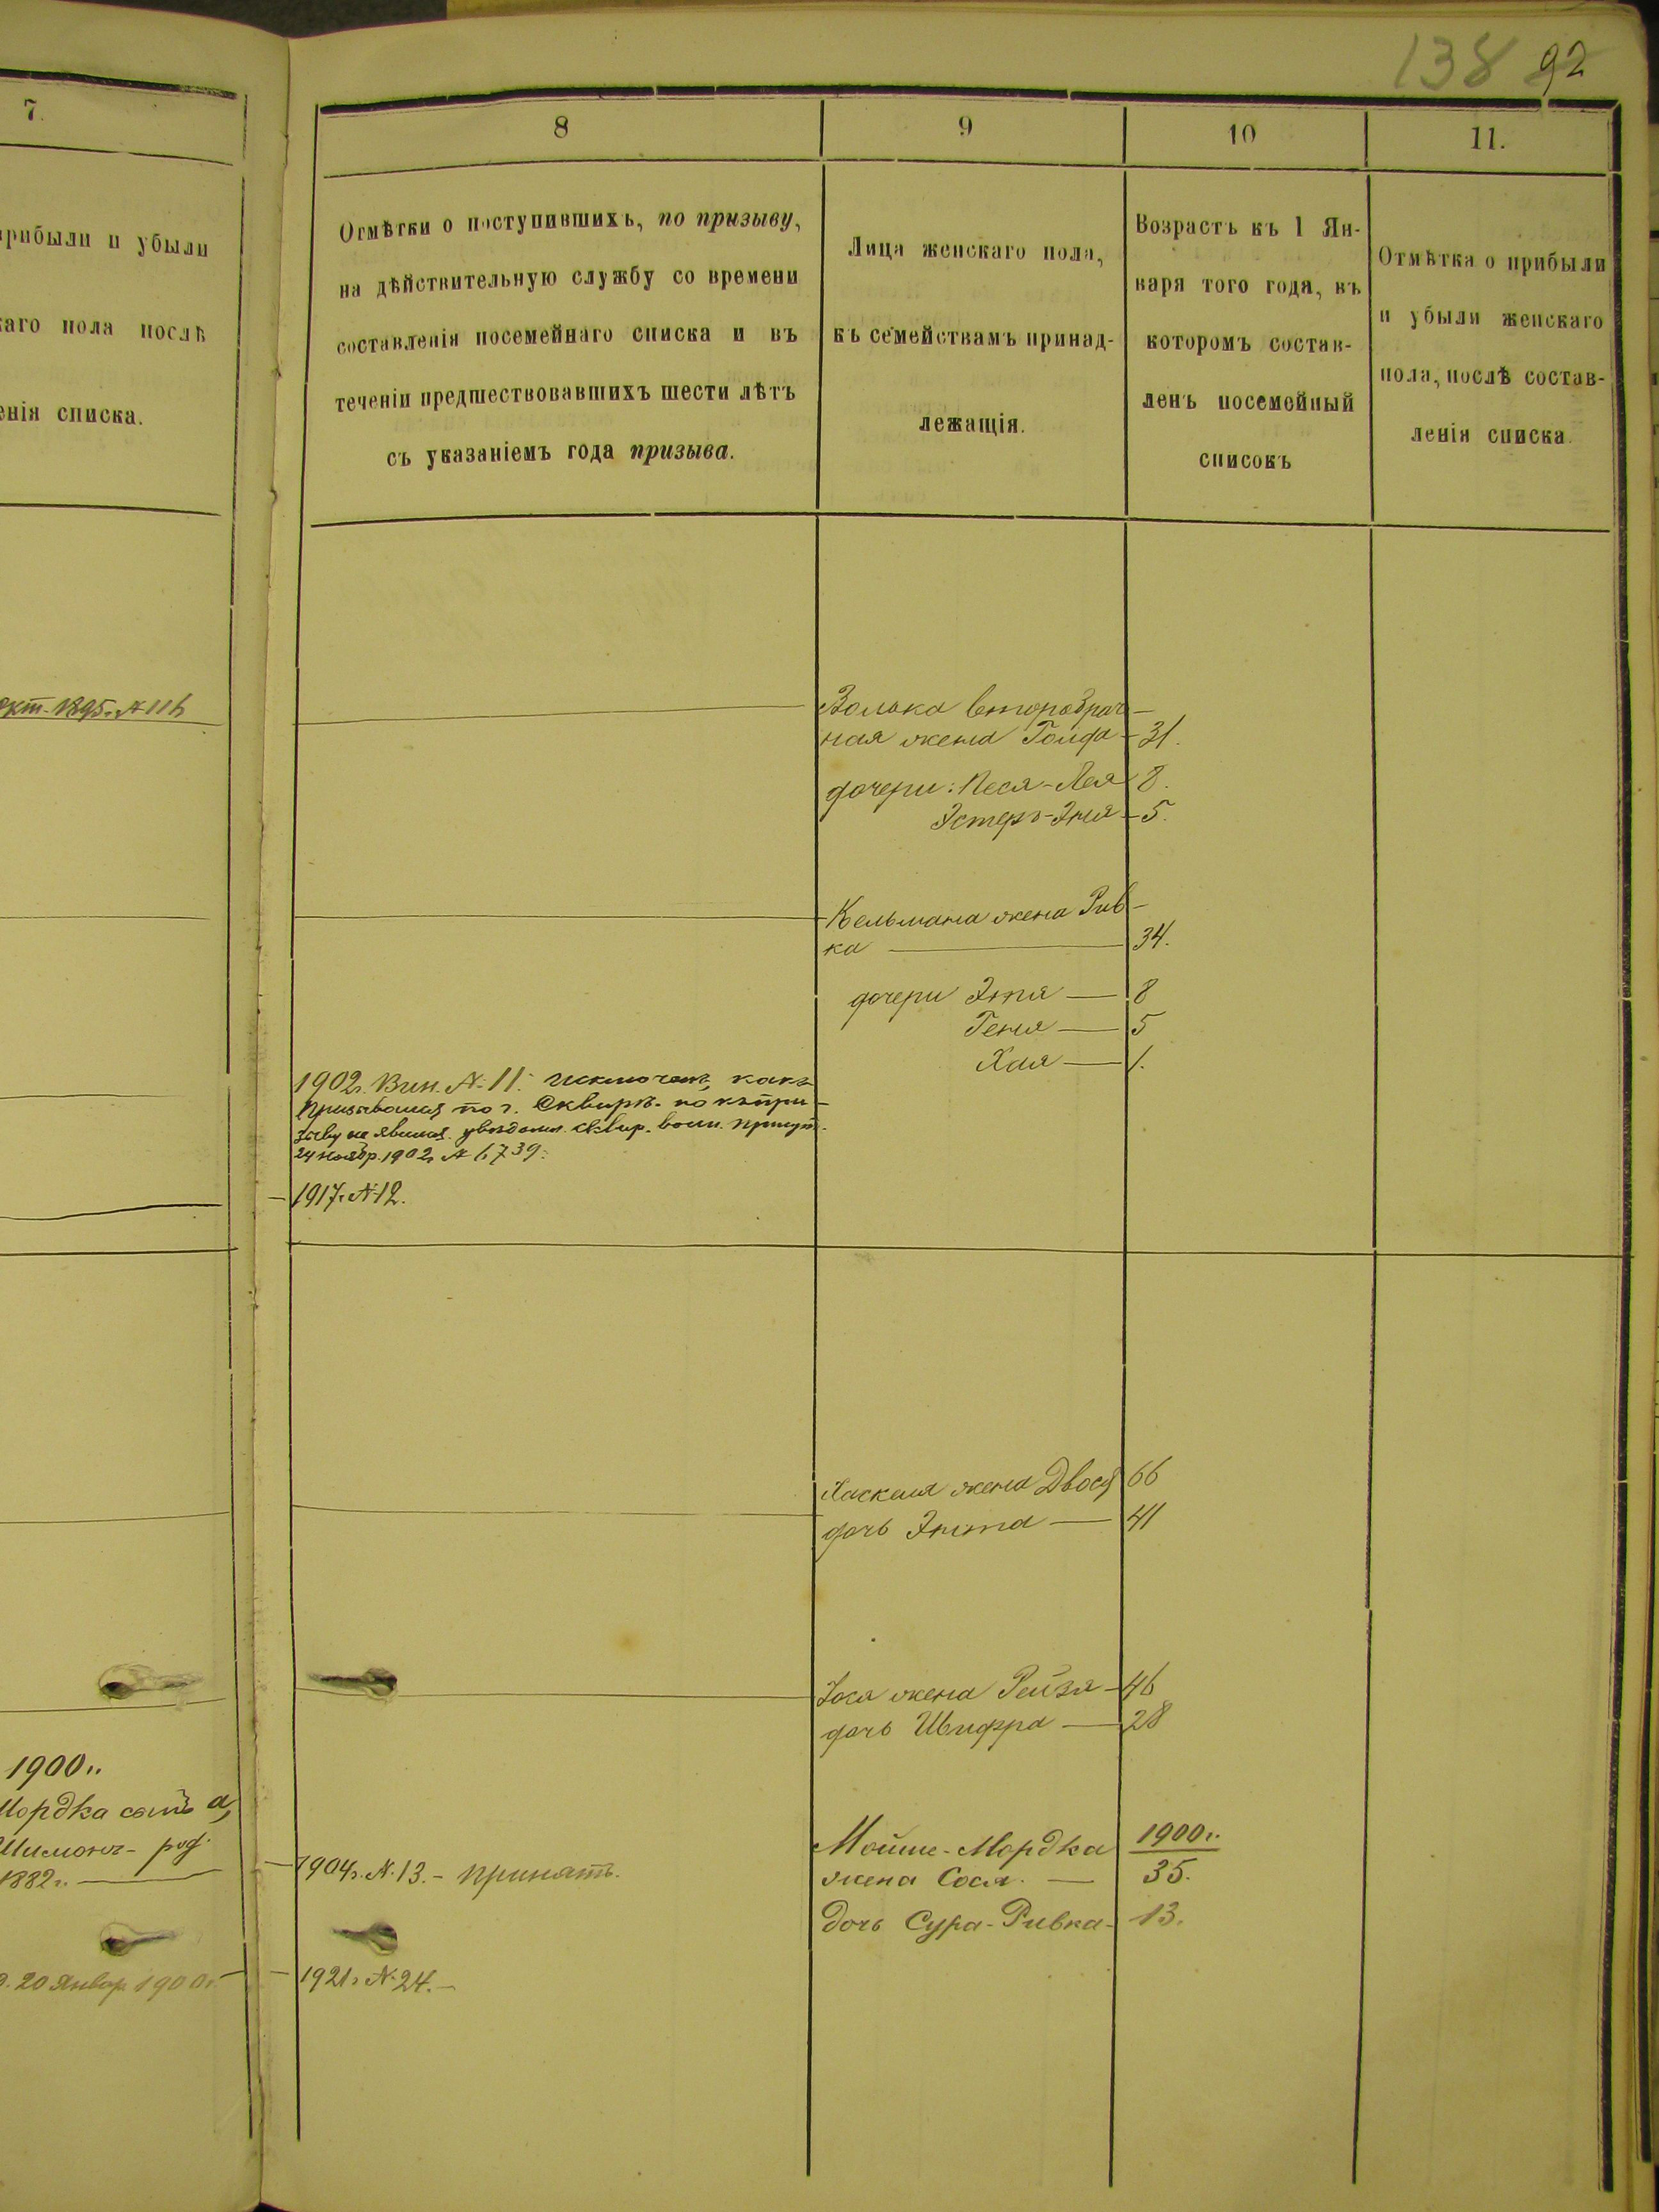 138 92
7.
прибыли и убыли
каго пола послѣ
енія списка.
окт. 1895 г. № 116
1900 г.
Мордка сынъ
Шимонъ - род.
1882 г.
20 Январ 1900 г.
8
Отмѣтки о поступившихъ, по призыву,
на дѣйствительную службу со времени
составленія посемейнаго списка и въ
теченіи предшествовавшихъ шести лѣтъ
съ указаніемъ года призыва.
1902 г. Вин. № 11. исключенъ, какъ
призывался по г. Сквирѣ. но къ при-
зыву не явился. увѣдомл. Сквир. воин. присут.
24 ноябр. 1902 г. № 6739.
1917 г. № 12.
1904 г. № 13. - принятъ.
1921 г. № 24. -
9
Лица женскаго пола,
къ семействамъ принад-
лежащія.
Волька второбрач-
ная жена Голда
дочери: Песя-Лея
Эстеръ-Эня
Кельмана жена Рив-
ка
дочери Этя
Геня
Хая
Хаскеля жена Двося
дочь Энта
Іося жена Рейзя
дочь Шифра
Мойше-Мордка
жена Сося.
дочь Сура-Ривка
10
Возрастъ къ 1 Ян-
варя того года, въ
которомъ состав-
ленъ посемейный
списокъ
31.
8.
5.
34.
8
5
1.
66
41
46
28
1900 г.
35.
13.
11.
Отмѣтка о прибыли
и убыли женскаго
пола, послѣ состав-
ленія списка.